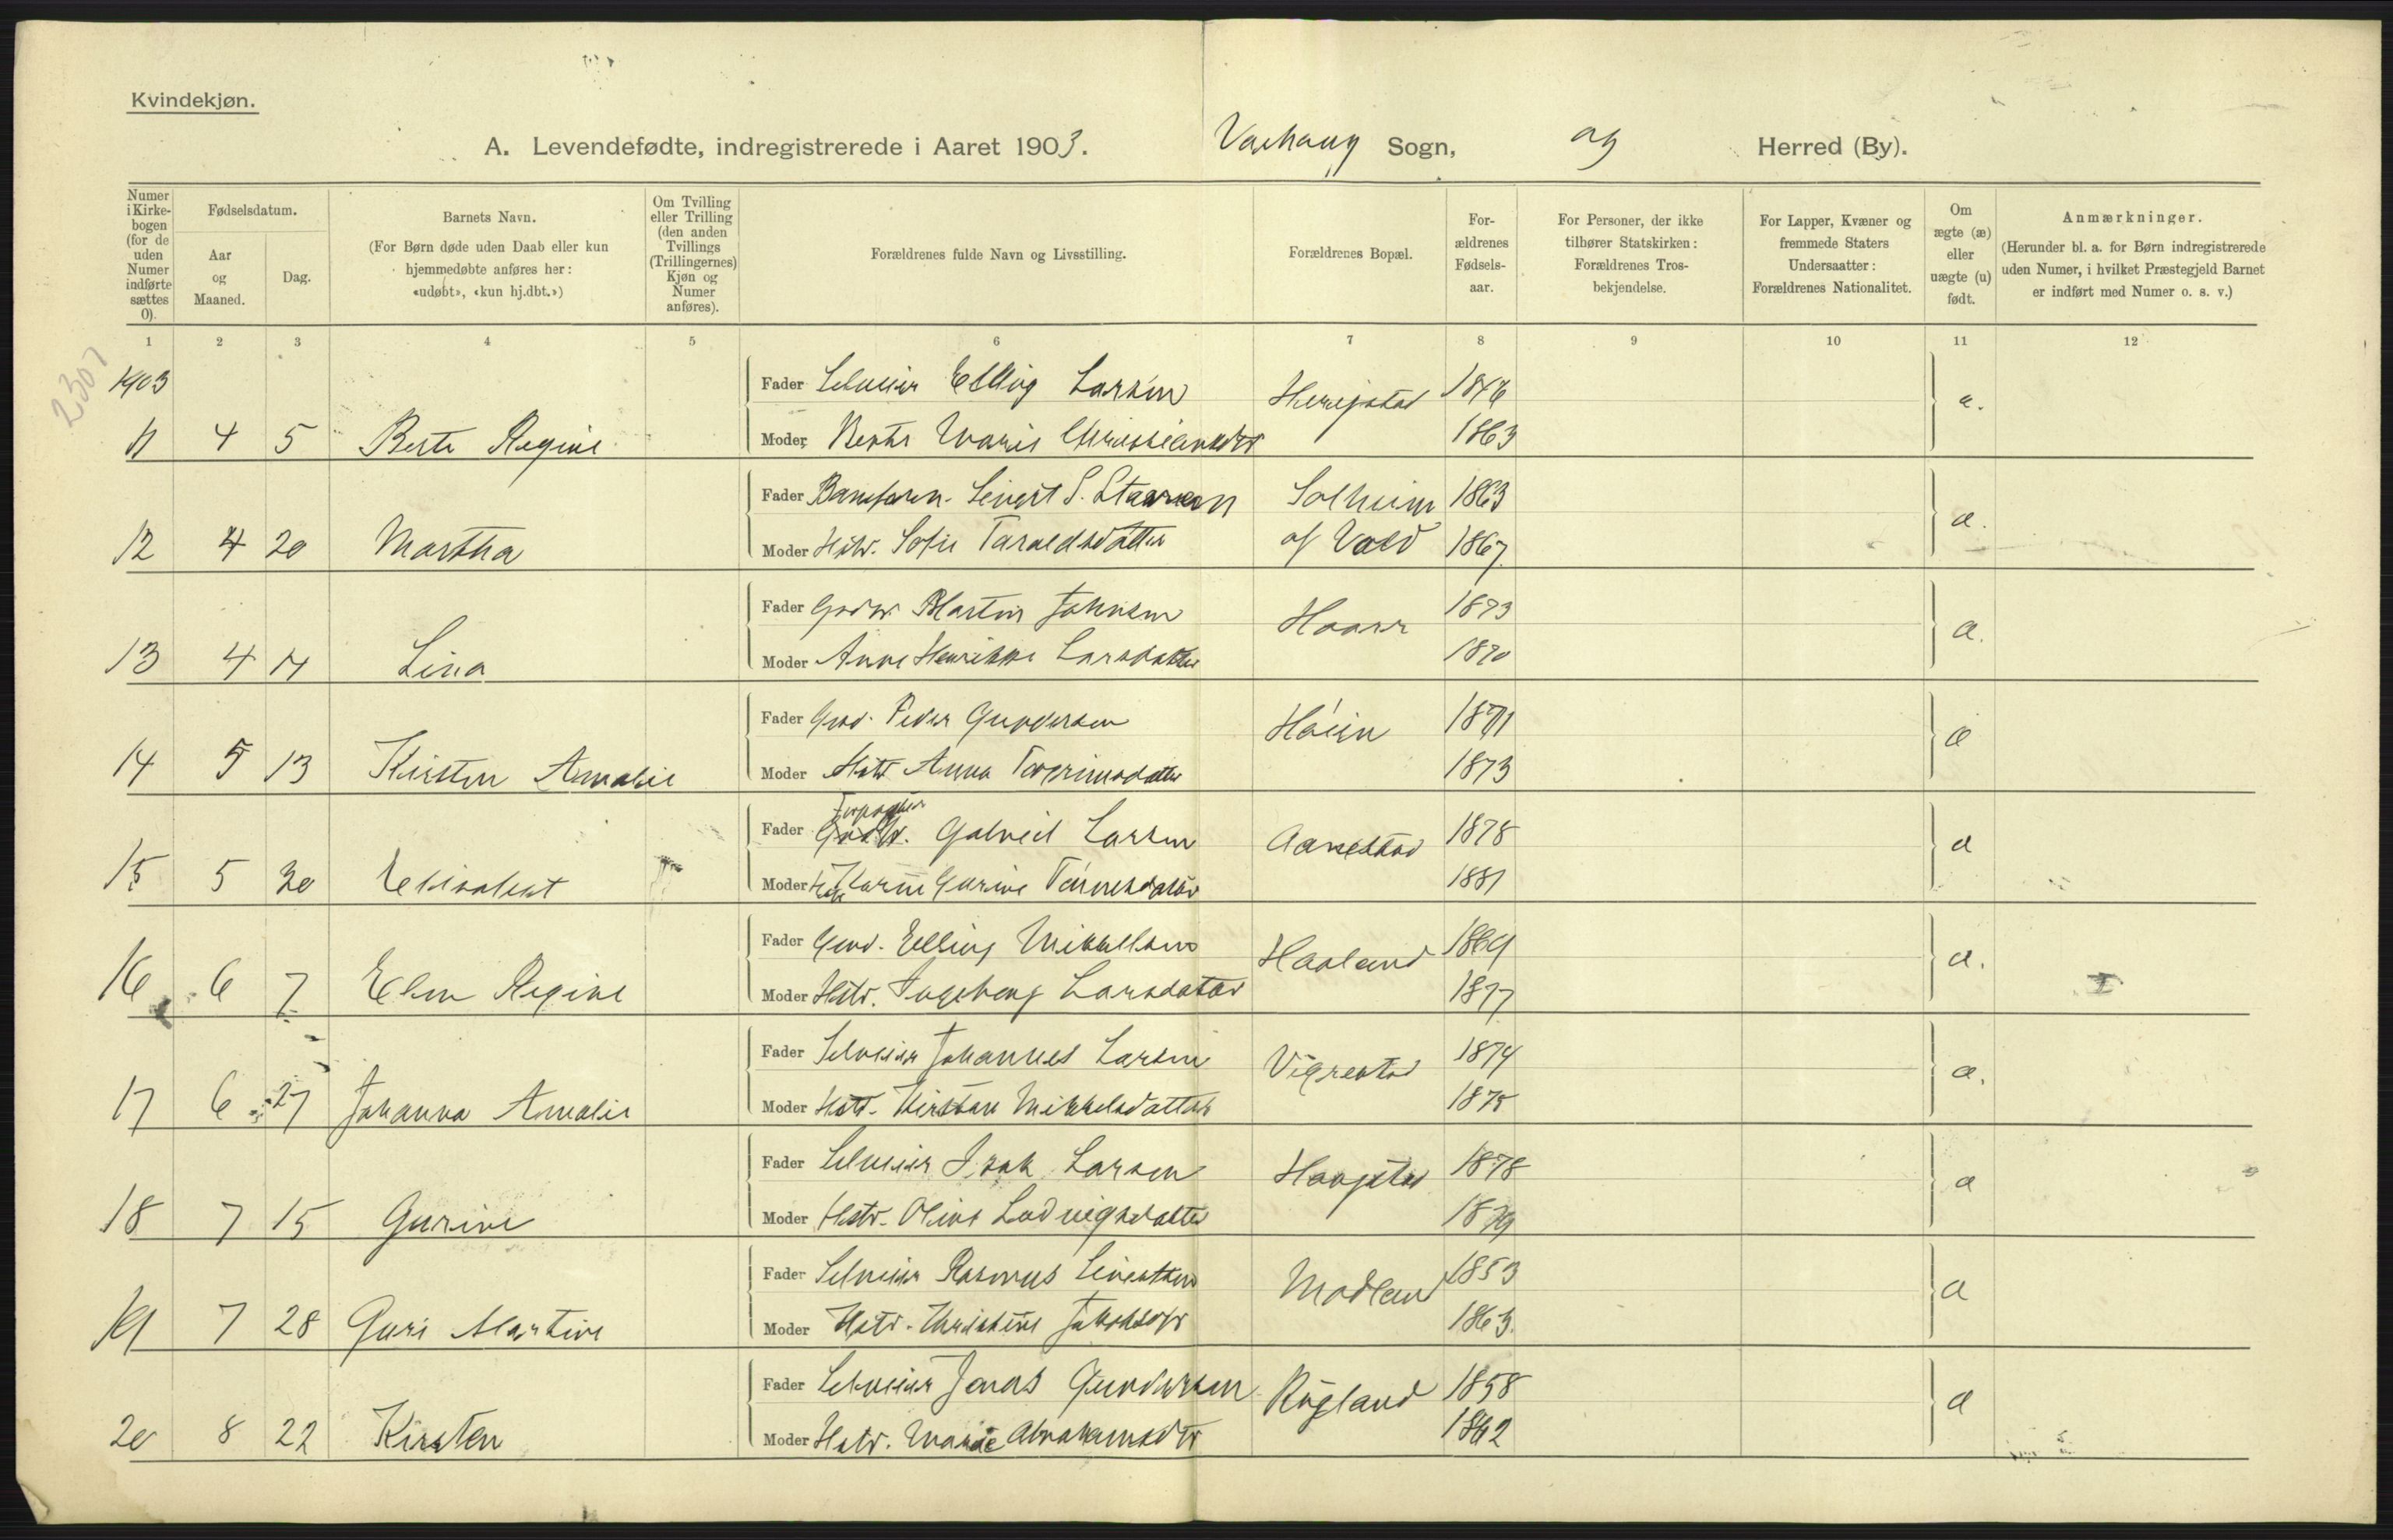 Kvindekjøn.
A. Levendefødte, indregistrerede i Aaret 1903. Varhaug Sogn, og Herred (By).
Numer i Kirkebogen (for de uden Numer indførte sættes 0).
Fødselsdatum.
Aar og Maaned.
Dag.
Barnets Navn.
(For Børn døde uden Daab eller kun hjemmedøbte anføres her: «udøbt», «kun hj.dbt.»)
Om Tvilling eller Trilling (den anden Tvillings (Trillingernes) Kjøn og Numer anføres).
Forældrenes fulde Navn og Livsstilling.
Forældrenes Bopæl.
Forældrenes Fødselsaar.
For Personer, der ikke tilhører Statskirken: Forældrenes Trosbekjendelse.
For Lapper, Kvæner og fremmede Staters Undersaatter: Forældrenes Nationalitet.
Om ægte (æ) eller uægte (u) født.
Anmærkninger.
(Herunder bl. a. for Børn indregistrerede uden Numer, i hvilket Præstegjeld Barnet er indført med Numer o. s. v.)
1 2 3 4 5 6 7 8 9 10 11 12
2307
1903
Fader Selveier Elling Larsen 1846
11 4 5 Berte Regine Moder Berte Marie
1863
Fader Sivert S. Solheim 1863
12 4 20 Martha Moder Hstr. Sofie af Vold 1867
Fader Martin Johnsen Haarr 1873
13 4 17 Lina Moder Anne Henrikke Larsdatter 1870
Fader Gmd. Peder Gundersen Høien 1871
14 5 13 Kirsten Amalie Moder Hstr Anna 1873
Forpagter
Fader Gabriel Larsen Aanestad 1878
15 5 30 Elisabet Moder Karin Gurine Tønnesdatter 1881
Fader Gmd. Elling Mikkelsen Haaland 1869
16 6 7 Elen Regine Moder Hstr. Ingeborg Larsdatter 1877
Fader Selveier Johannes Larsen Vigrestad 1874
17 6 27 Johanna Amalie Moder Hstr. Kirsten Mikkelsdatter 1875
Fader Selveier Isak Larsen Haugstad 1878
18 7 15 Gurine Moder Hstr. Oline Ludvigsdatter 1879
Fader Selveier Rasmus Sivertsen Modland 1853
19 7 28 Guri Martine Moder Hstr. Kristine Jakobsdtr 1863.
Fader Selveier Jonas Gundersen Rugland 1858
20 8 22 Kirsten Moder Hstr. Marie Abrahamsdtr 1862